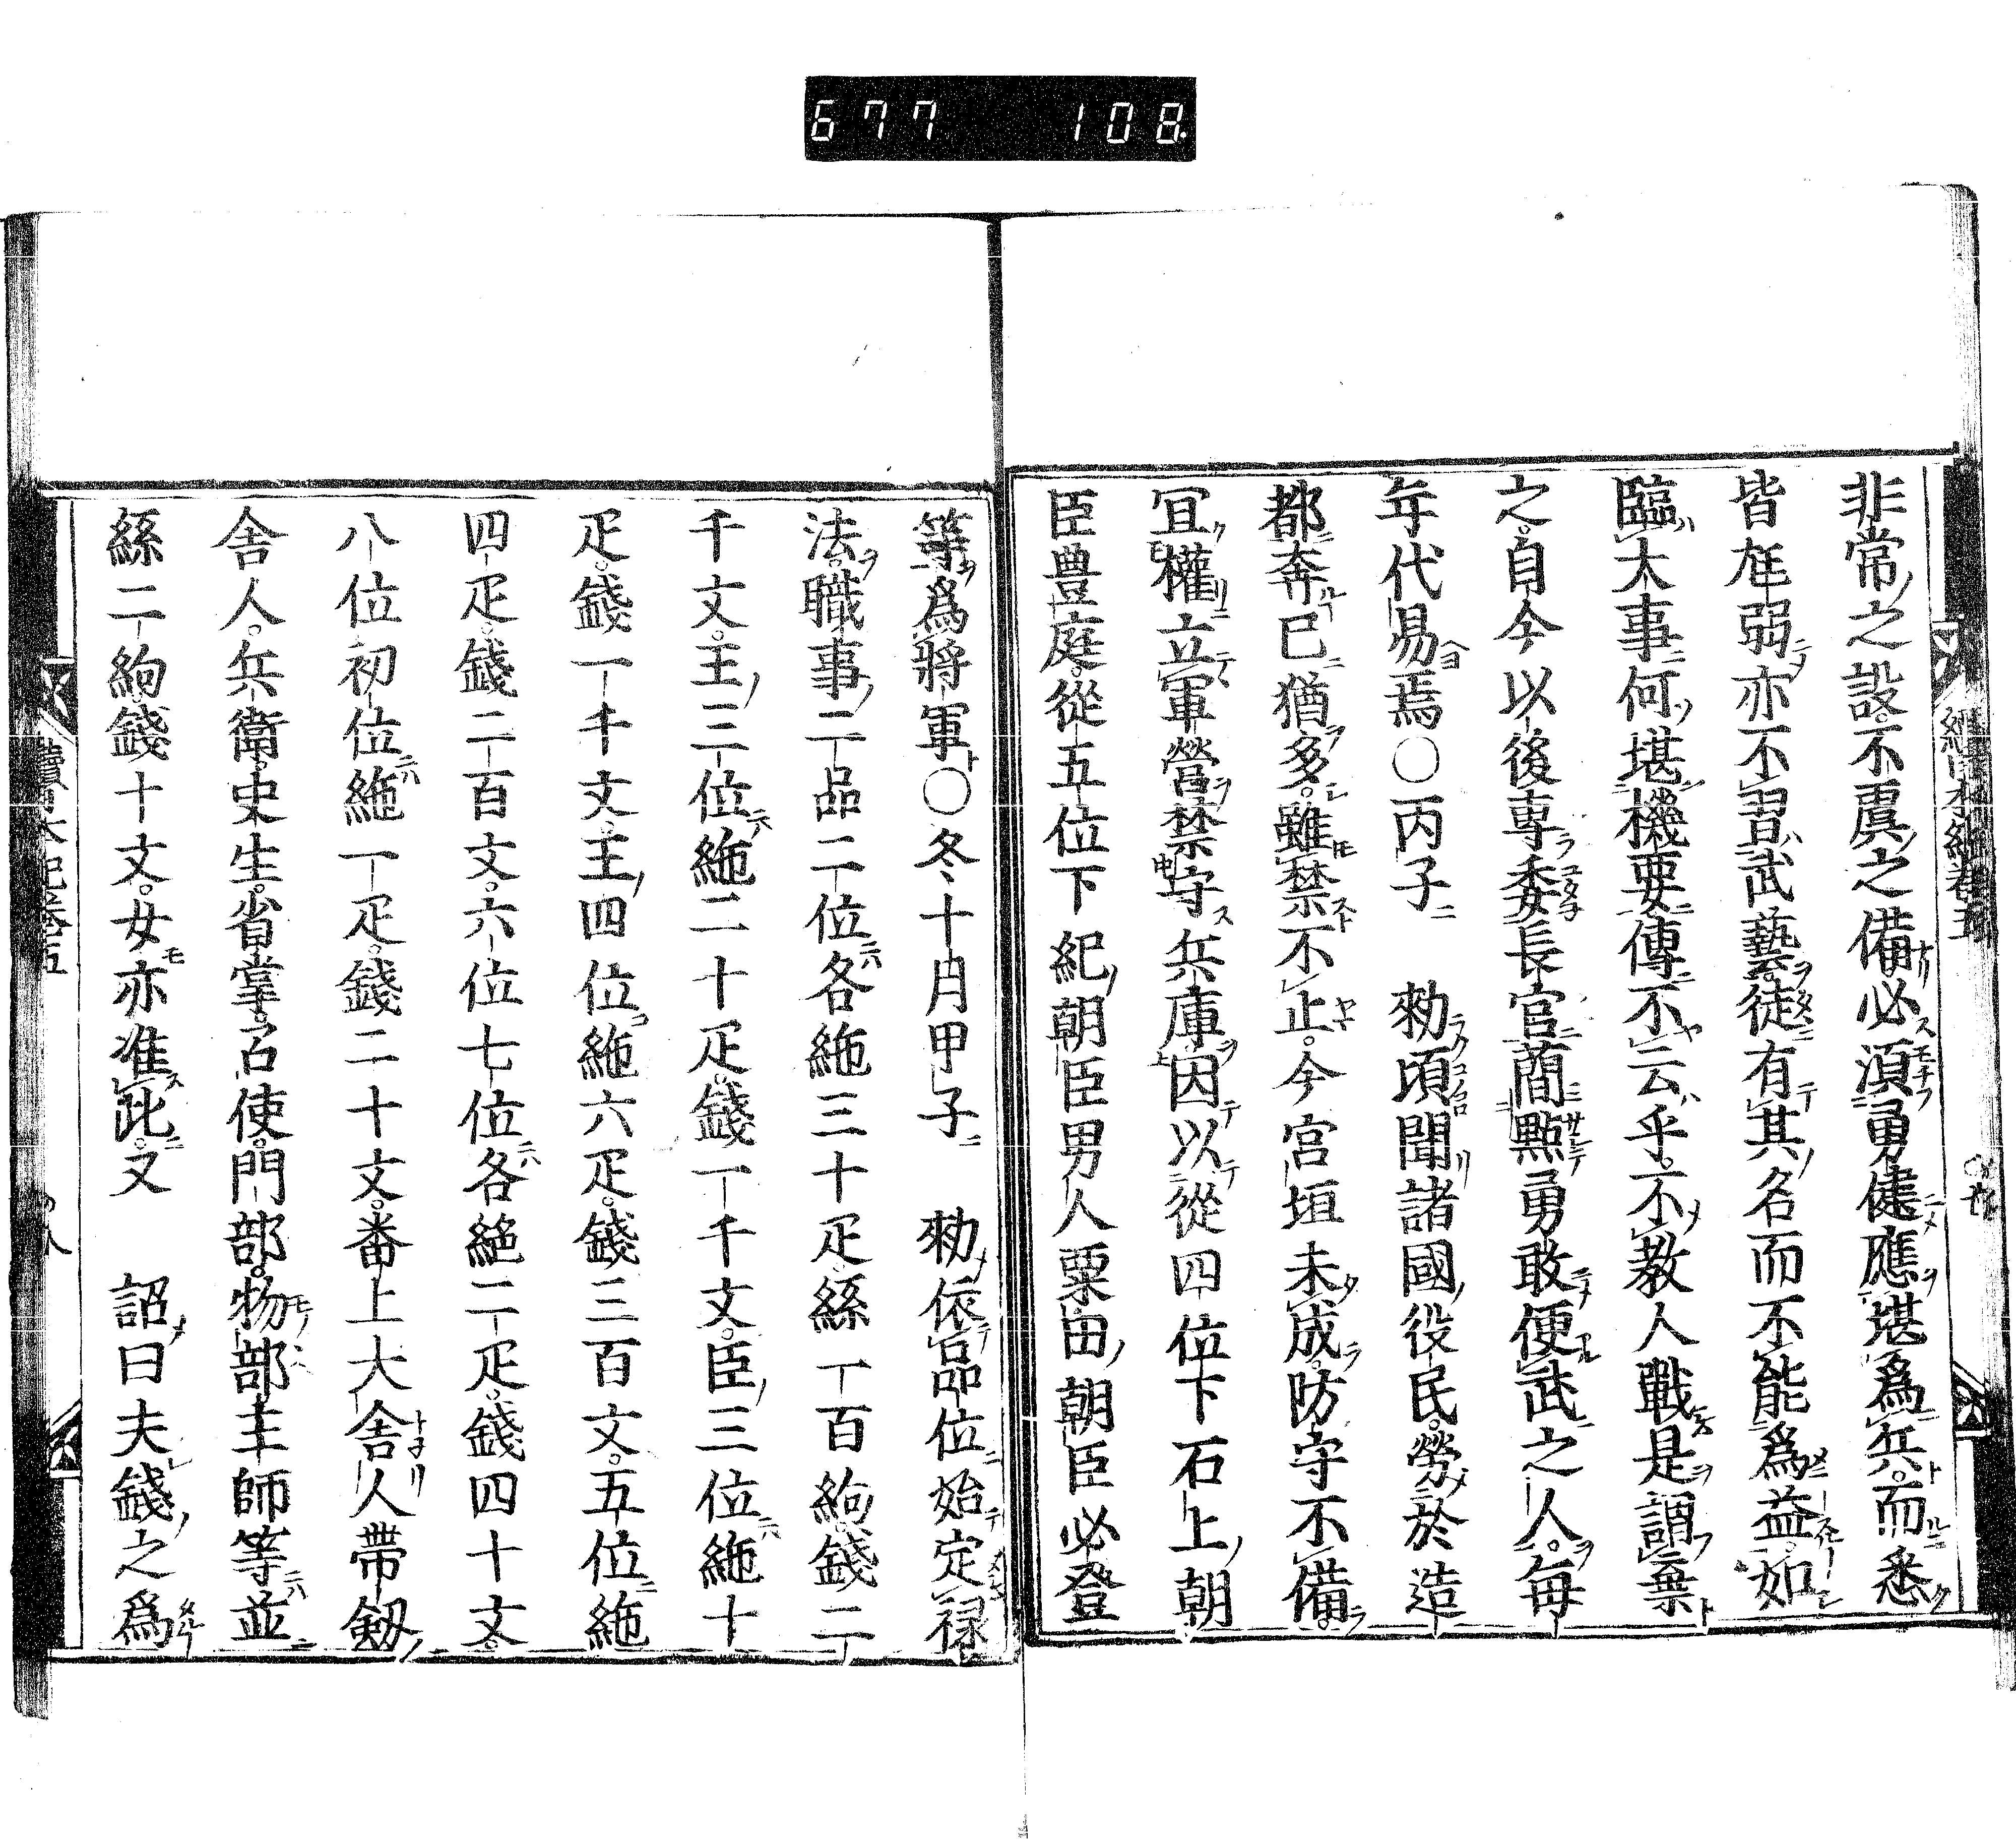 677 108
非常之設不虞之備必須勇健應堪爲兵而悉
皆尫弱亦不習武藝徒有其名而不能爲益如
臨大事何堪機要傳不云乎不教人戰是謂棄
之自今以後専委長官蕳點勇敢便武之人毎
年代易焉○丙子　勅頃聞諸國役民勞於造
都奔亡猶多雖禁不止今宮垣未成防守不備
冝權立軍營禁守兵庫因以從四位下石上朝
臣豊庭從五位下紀朝臣男人粟田朝臣必登
等爲將軍○冬十月甲子　勅依品位始定禄
法職事二品二位各絁三十疋絲一百絇錢二
千文王三位絁二十疋錢一千文臣三位絁十
疋錢一千文王四位絁六疋錢三百文五位絁
四疋錢二百文六位七位各絁二疋錢四十文
八位初位絁一疋錢二十文番上大舎人帶劔
舎人兵衛史生省掌召使門部物部主師等並
絲二絇錢十文女亦准此又　詔曰夫錢之爲